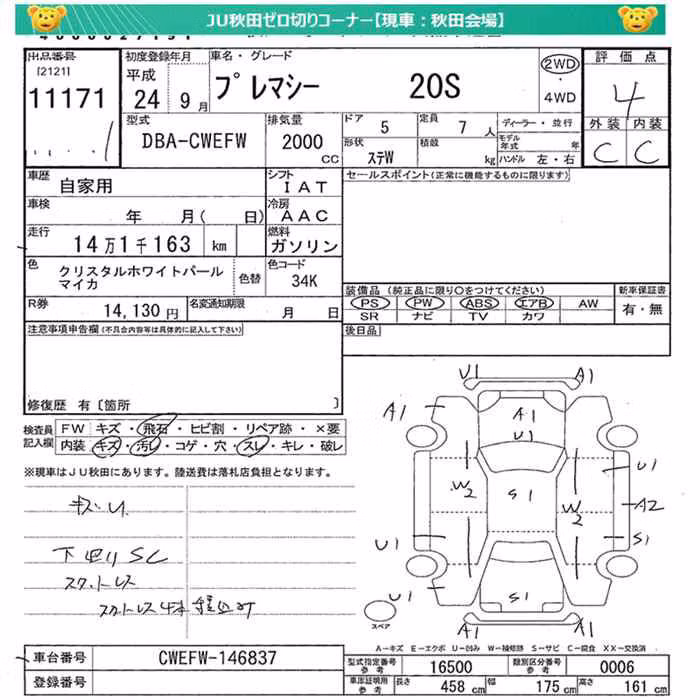 JU秋田ゼロ切りコーナー【現車：秋田会場】
出品番号
[2121]
11171
初度登録年月
平成
24 9月
車名・グレード
プレマシー 20S
2WD
・
4WD
評価点
4
外装 内装
C C
型式
DBA-CWEFW
排気量
2000
CC
ドア 5
定員 7人
ディーラー・並行
形状 ステW
積載 kg
モデル年式 年
ハンドル 左・右
車歴 自家用
シフト
IAT
セールスポイント(正常に機能するものに限ります)
車検 年 月( 日)
冷房
AAC
走行 14万1千163 km
燃料
ガソリン
色 クリスタルホワイトパールマイカ
色替
色コード
34K
装備品 (純正品に限り○をつけてください)
新車保証書
PS PW ABS エアB AW
有・無
SR ナビ TV カワ
R券 14,130円
名変通知期限 月 日
後日品
注意事項申告欄(不具合内容等は具体的に記入して下さい)
修復歴 有〔箇所 〕
検査員
記入欄
FW キズ・飛石・ヒビ割・リペア跡・×要
内装 キズ・汚レ・コゲ・穴・スレ・キレ・破レ
※現車はJU秋田にあります。陸送費は落札店負担となります。
キズ・U
下回りSC
スタットレス
スタットレス4本
U1 A1
A1 A1
U1
U1
W2 S1 W2
A2
U1 S1
S1
A1 A1
スペア
A－キズ E－エクボ U－凹み W－補修跡 S－サビ C－腐食 XX－交換済
車台番号 CWEFW-146837
登録番号
型式指定番号
参考
16500
類別区分番号
参考
0006
車庫証明用
参考
長さ 458 cm
幅 175 cm
高さ 161 cm